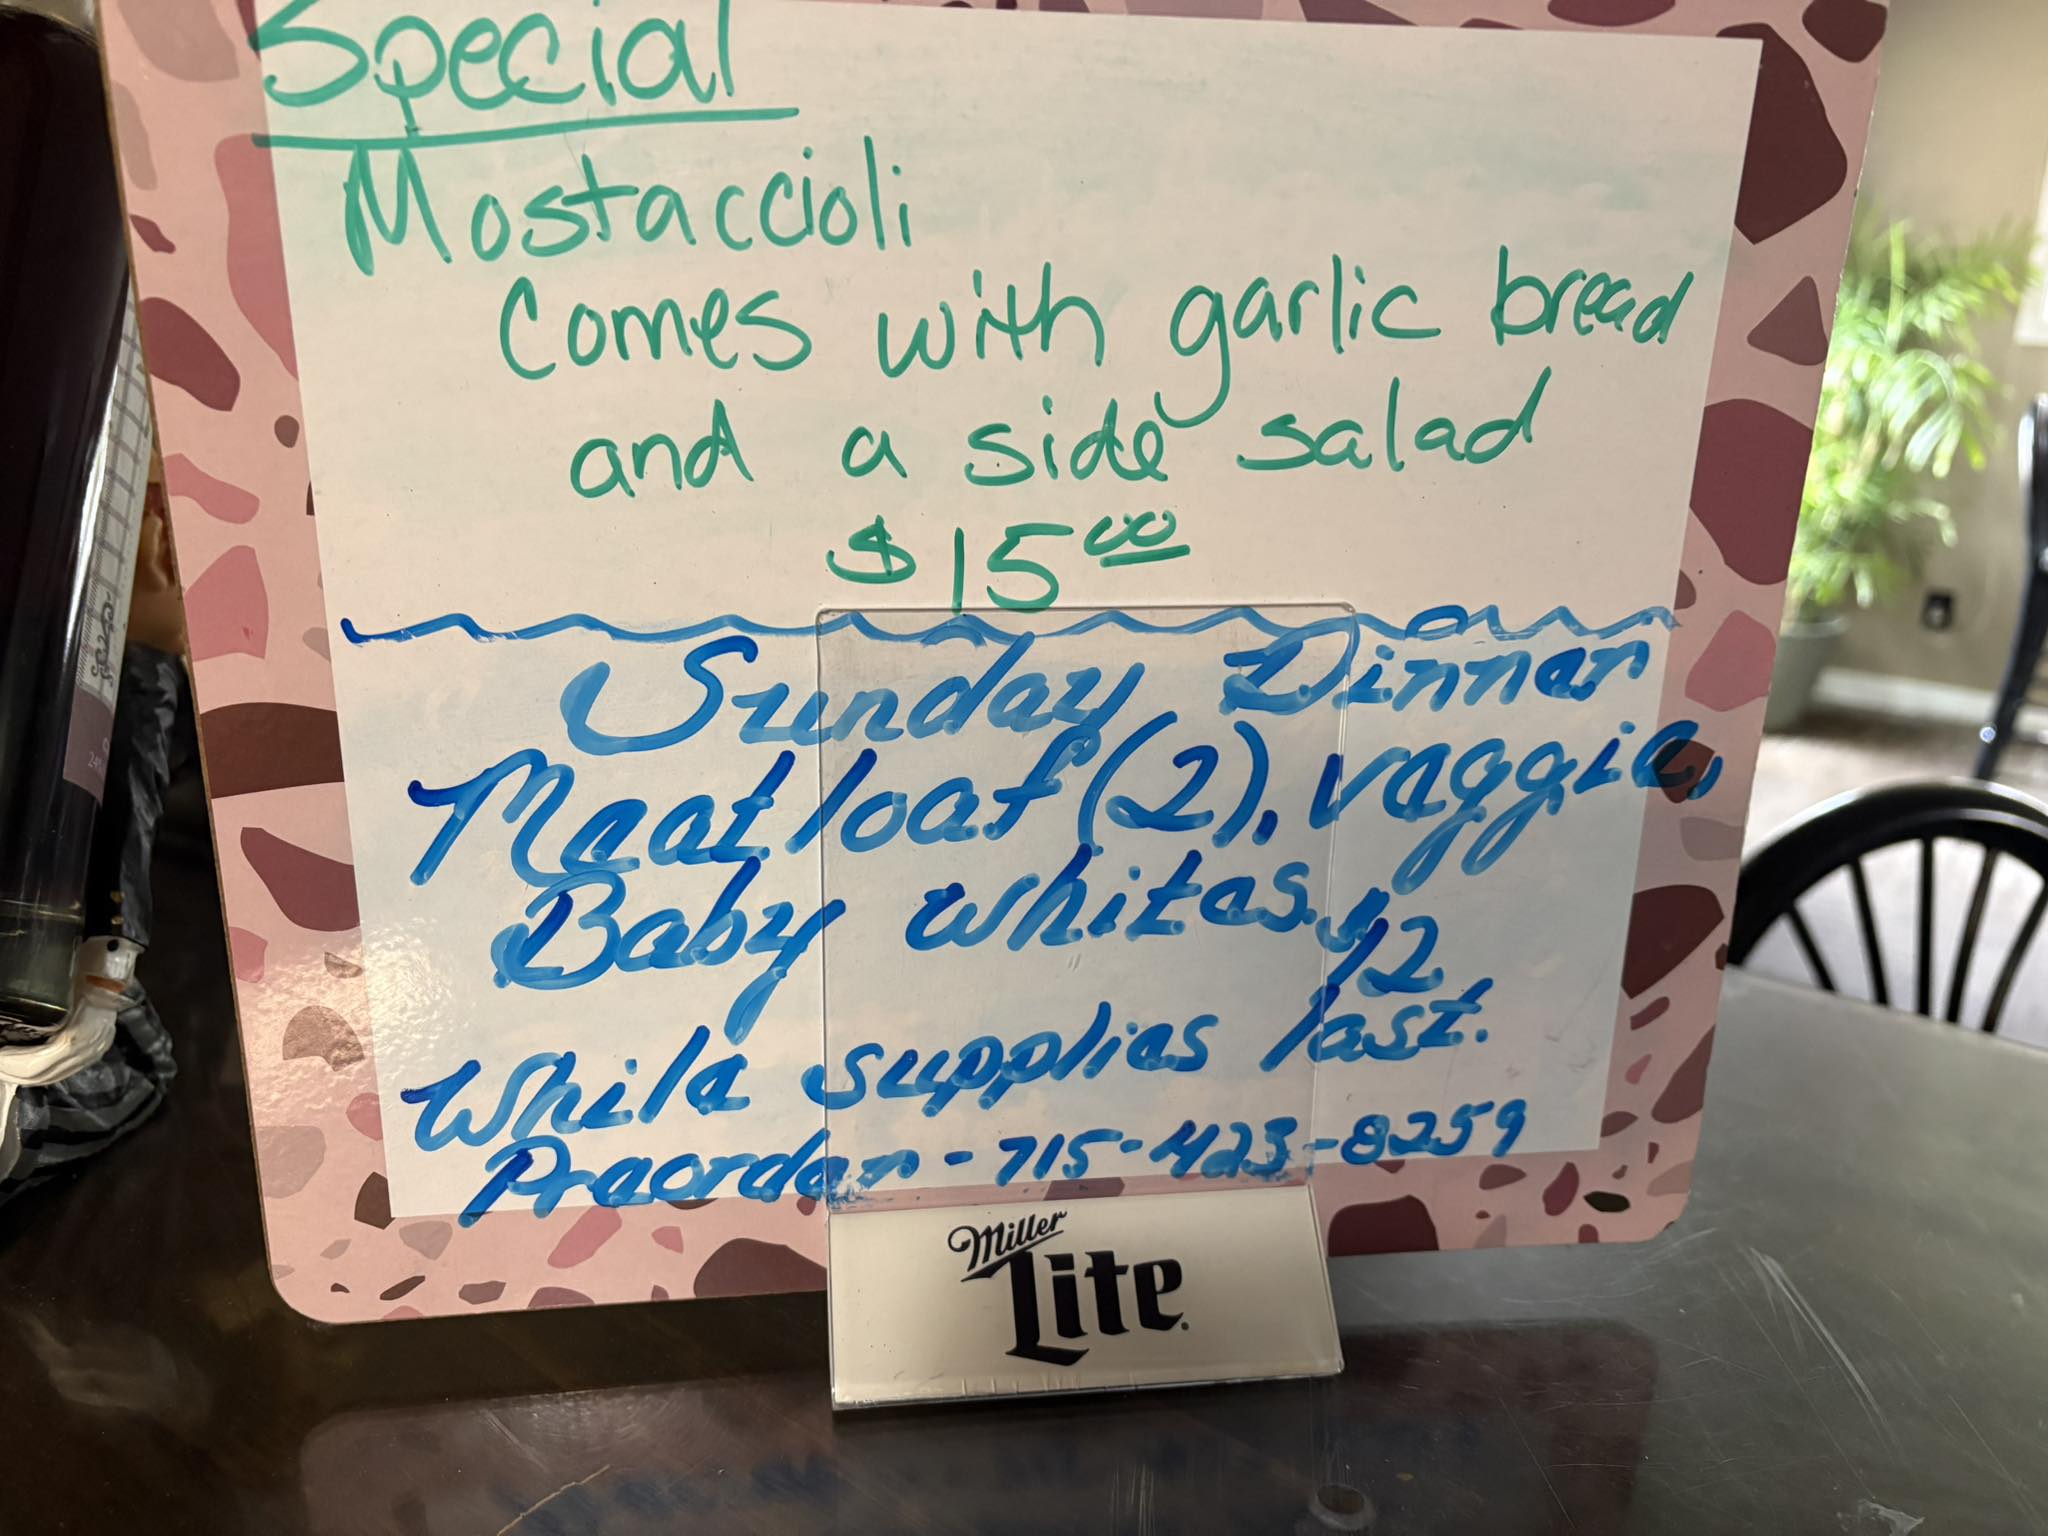 Special
Mostaccioli
Comes with garlic bread
and a side salad
$15.00
Sunday Dinner
Meatloaf (2), veggie,
Baby whites. $12
While supplies last.
Preorder - 715-423-8259
Miller
Lite